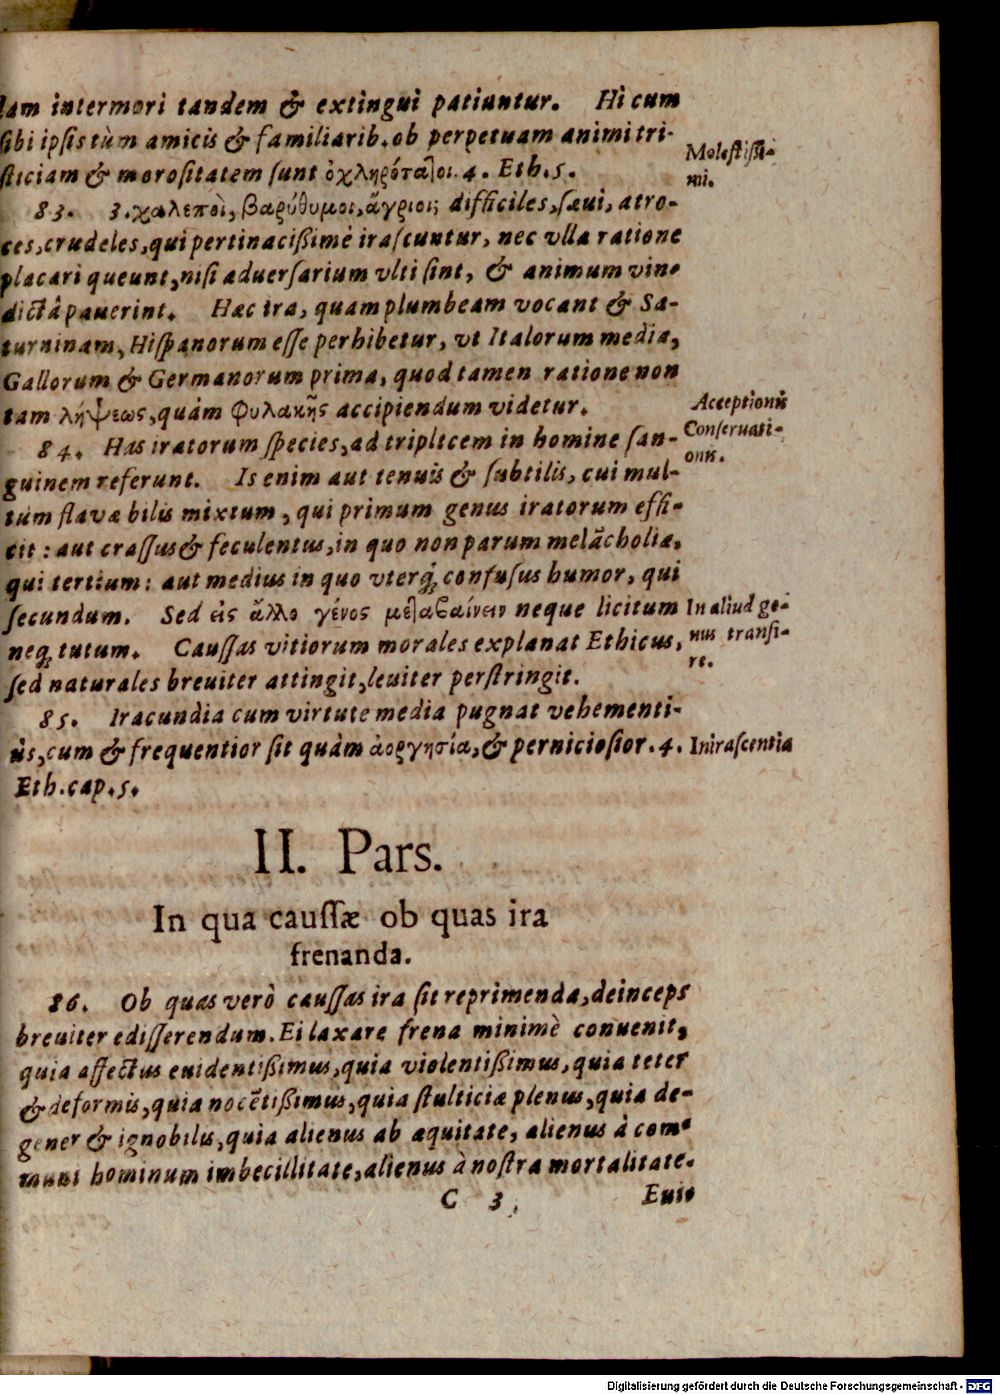 lam intermori tandem & extingui patiuntur. Hi cum
sibi ipsis tùm amicis & familiarib. ob perpetuam animi tri-
sticiam & morositatem sunt ὀχληρότατοι. 4. Eth. 5.
Molestissi-
mi.
83. 3. χαλεποὶ, βαρύθυμοι, ἄγριοι; difficiles, sæui, atro-
ces, crudeles, qui pertinacißimè irascuntur, nec vlla ratione
placari queunt, nisi aduersarium vlti sint, & animum vin-
dictâ pauerint. Hæc ira, quam plumbeam vocant & Sa-
turninam, Hispanorum esse perhibetur, vt Italorum media,
Gallorum & Germanorum prima, quod tamen ratione non
tam λήψεως, quàm φυλακῆς accipiendum videtur.
Acceptionis
Conseruati-
onis.
84. Has iratorum species, ad triplicem in homine san-
guinem referunt. Is enim aut tenuis & subtilis, cui mul-
tùm flavæ bilis mixtum, qui primum genus iratorum effi-
cit: aut crassus & feculentus, in quo non parum melãcholiæ,
qui tertium: aut medius in quo vterq; confusus humor, qui
secundum. Sed εἰς ἄλλο γένος μεταβαίνειν neque licitum
neq; tutum. Caussas vitiorum morales explanat Ethicus,
sed naturales breuiter attingit, leuiter perstringit.
In aliud ge-
nus transi-
re.
85. Iracundia cum virtute media pugnat vehementi-
ùs, cum & frequentior sit quàm ἀοργησία, & perniciosior. 4.
Eth. cap. 5.
Inirascentia
II. Pars.
In qua caussæ ob quas ira
frenanda.
86. Ob quas verò caussas ira sit reprimenda, deinceps
breuiter edisserendum. Ei laxare frena minimè conuenit,
quia affectus euidentißimus, quia violentißimus, quia teter
& deformis, quia nocẽtißimus, quia stulticiæ plenus, quia de-
gener & ignobilis, quia alienus ab æquitate, alienus à com-
muni hominum imbecillitate, alienus à nostra mortalitate.
C 3 Eui-
Digitalisierung gefördert durch die Deutsche Forschungsgemeinschaft - DFG